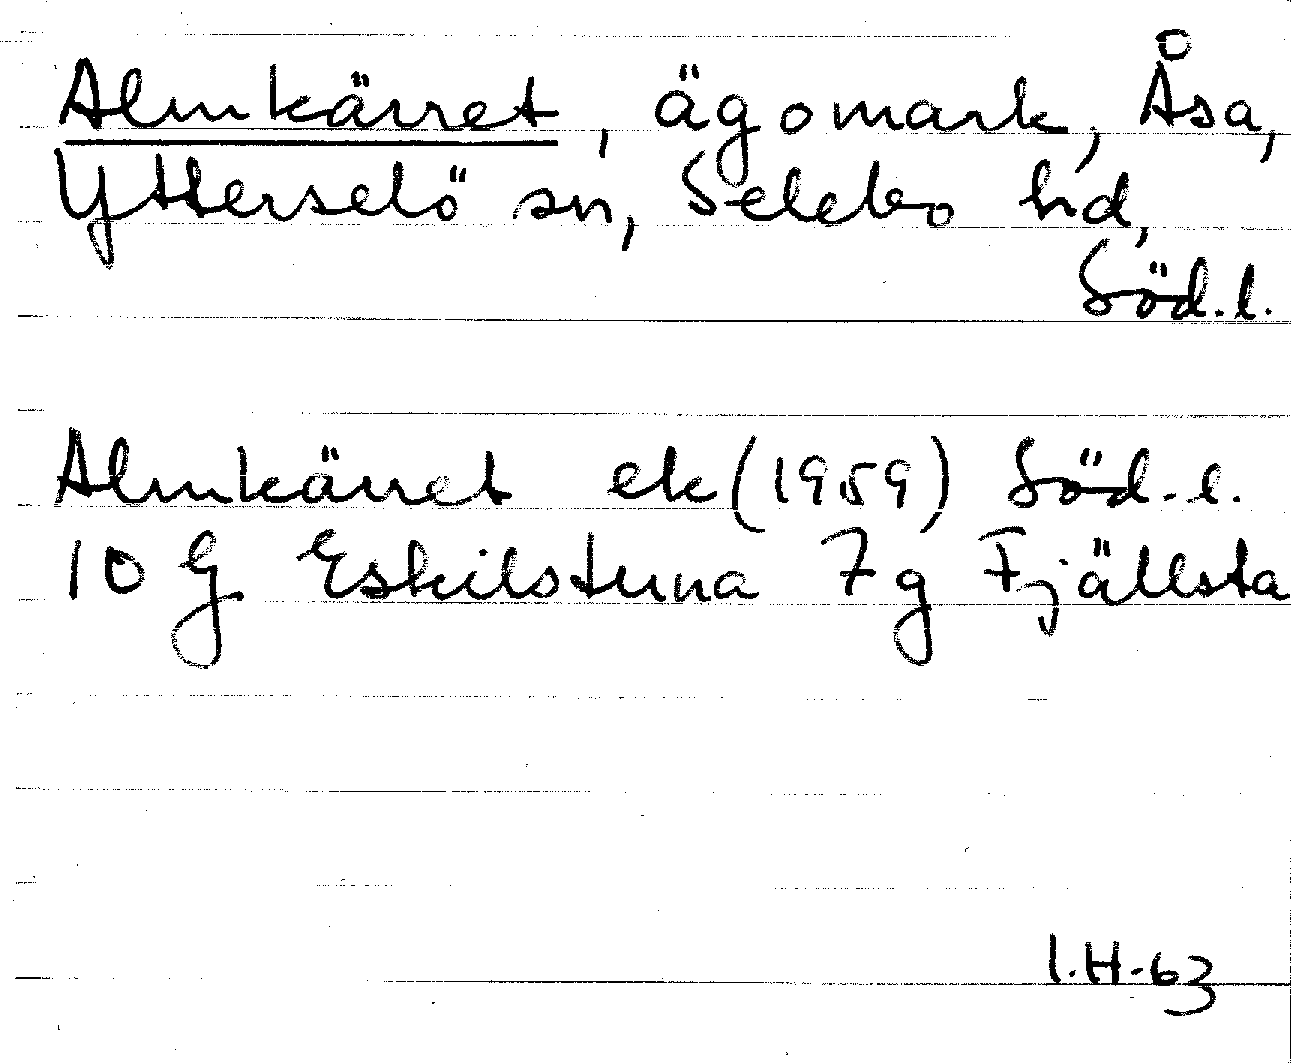 Almkärret, ägomark, Åsa,
Ytterselö sn, Selebo hd,
Söd.l.
Almkärret ek (1959) Söd.l.
10 G Eskilstuna 7g Fjällsta
I.H-63